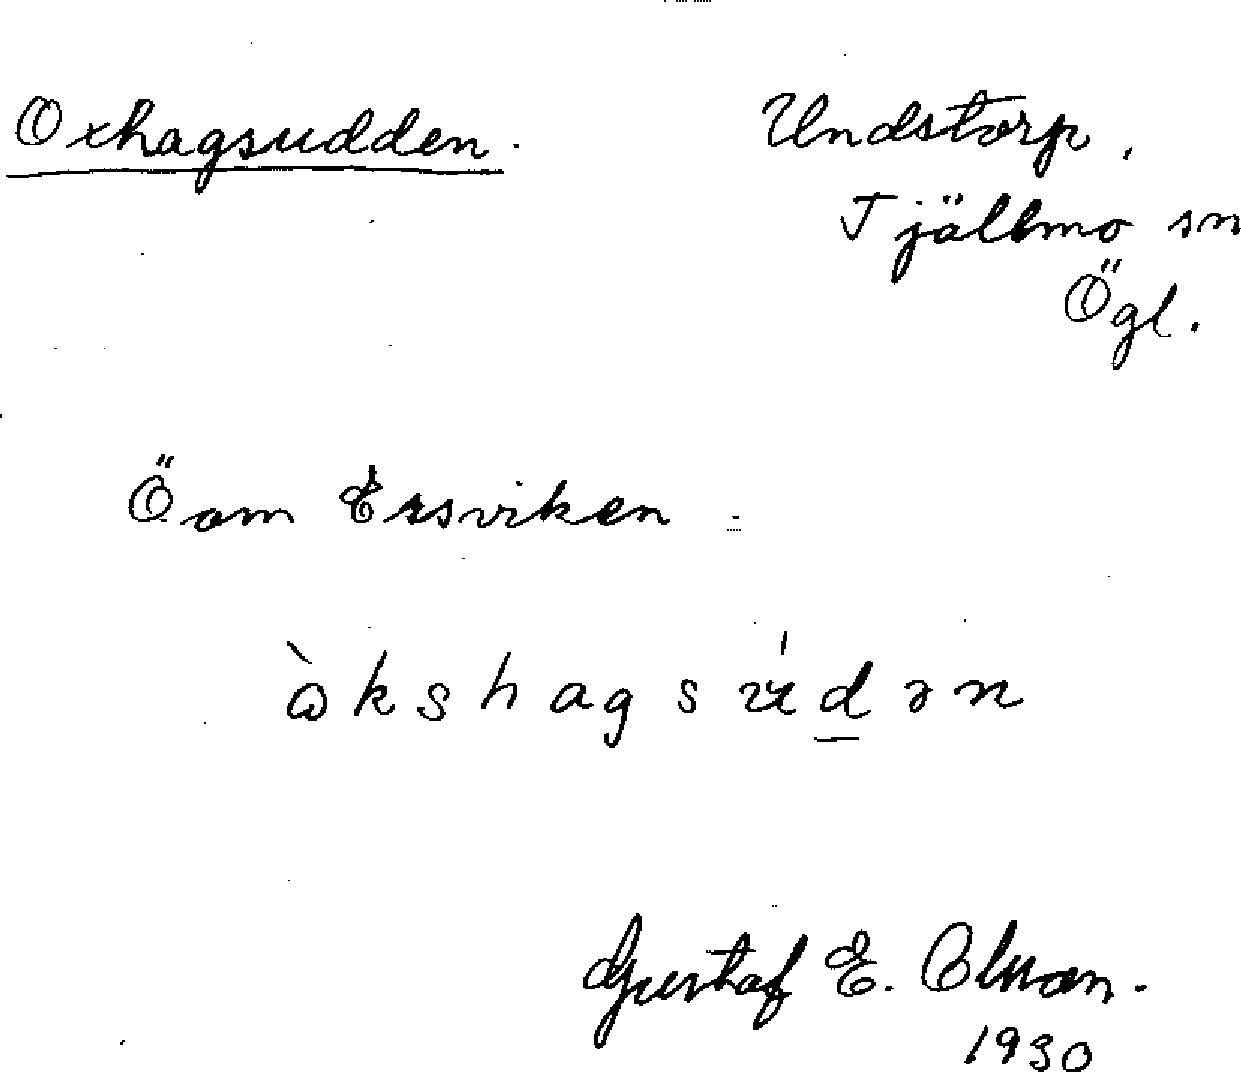 Oxhagsudden.
Undstorp,
Tjällmo sn
Ögl.
Ö om Ersviken.
òkshagsúdən
Gustaf E. Olsson.
1930